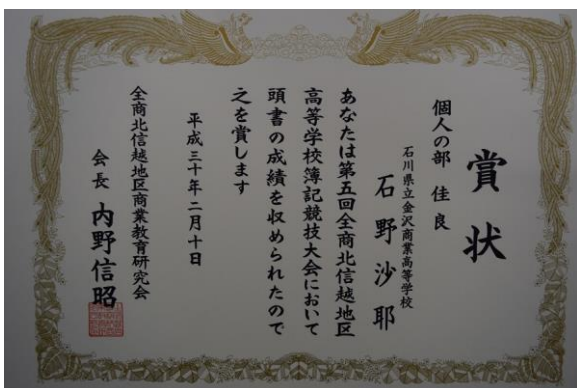 賞状
個人の部 佳良
石川県立金沢商業高等学校
石野沙耶
あなたは第五回全商北信越地区
高等学校簿記競技大会において
頭書の成績を収められたので
之を賞します
平成三十年二月十日
全商北信越地区商業教育研究会
会長 内野信昭